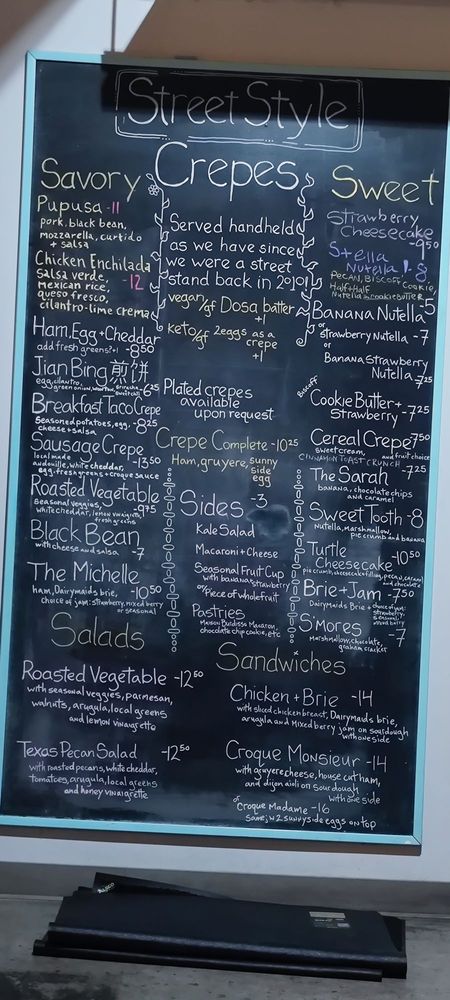 Street Style
Crepes
Savory
Pupusa -11
pork, black bean,
mozzarella, curtido
+ salsa
Chicken Enchilada
salsa verde, -12
Mexican rice,
queso fresco,
cilantro-lime crema
Ham, Egg + Cheddar
add fresh greens? +1 -8.50
Jian Bing 煎饼
egg, cilantro, 6.25
green onion, sriracha
Breakfast Taco Crepe
seasoned potatoes, egg, -8.25
cheese + salsa
Sausage Crepe
local made -13.50
andouille, white cheddar,
egg, fresh greens + croque sauce
Roasted Vegetable
seasonal veggies, 9.75
white cheddar, lemon vinaigrette,
fresh greens
Black Bean
with cheese and salsa -7
The Michelle
ham, Dairymaids brie, -10.50
choice of jam: strawberry, mixed berry
or seasonal
Salads
Roasted Vegetable -12.50
with seasonal veggies, parmesan,
walnuts, arugula, local greens
and lemon vinaigrette
Texas Pecan Salad -12.50
with roasted pecans, white cheddar,
tomatoes, arugula, local greens
and honey vinaigrette
Served handheld
as we have since
we were a street
stand back in 2010!
vegan/gf Dosa batter
+1
keto/gf 2 eggs as a
crepe
+1
Plated crepes
available
upon request
Crepe Complete -10.25
Ham, gruyere, sunny
side
egg
Sides -3
Kale Salad
Macaroni + Cheese
Seasonal Fruit Cup
with banana + strawberry
or Piece of whole fruit
Pastries
Macaron,
chocolate chip cookie, etc
Sweet
Strawberry
Cheesecake
-9.50
Stella
Nutella -8
Pecan, Biscoff Cookie,
Half + Half
Nutella + Cookie Butter
Banana Nutella 5
or
Strawberry Nutella -7
or
Banana Strawberry
Nutella 7.25
Biscoff
Cookie Butter +
Strawberry -7.25
Cereal Crepe 7.50
sweet cream, and fruit choice
CINNAMON TOAST CRUNCH
The Sarah -7.25
banana, chocolate chips
and caramel
Sweet Tooth -8
nutella, marshmallow,
pie crumb and banana
Turtle
Cheesecake -10.50
pie crumb, cheesecake filling, pecan, caramel
and chocolate
Brie + Jam -7.50
Dairymaids Brie + choice of jam:
strawberry,
seasonal,
mixed berry
S'mores -7
marshmallow, chocolate,
graham cracker
Sandwiches
Chicken + Brie -14
with sliced chicken breast, Dairymads brie,
arugula and mixed berry jam on sourdough
with one side
Croque Monsieur -14
with gruyere cheese, house cut ham,
and dijon aioli on sourdough
with one side
or
Croque Madame -16
same, w 2 sunnyside eggs on top